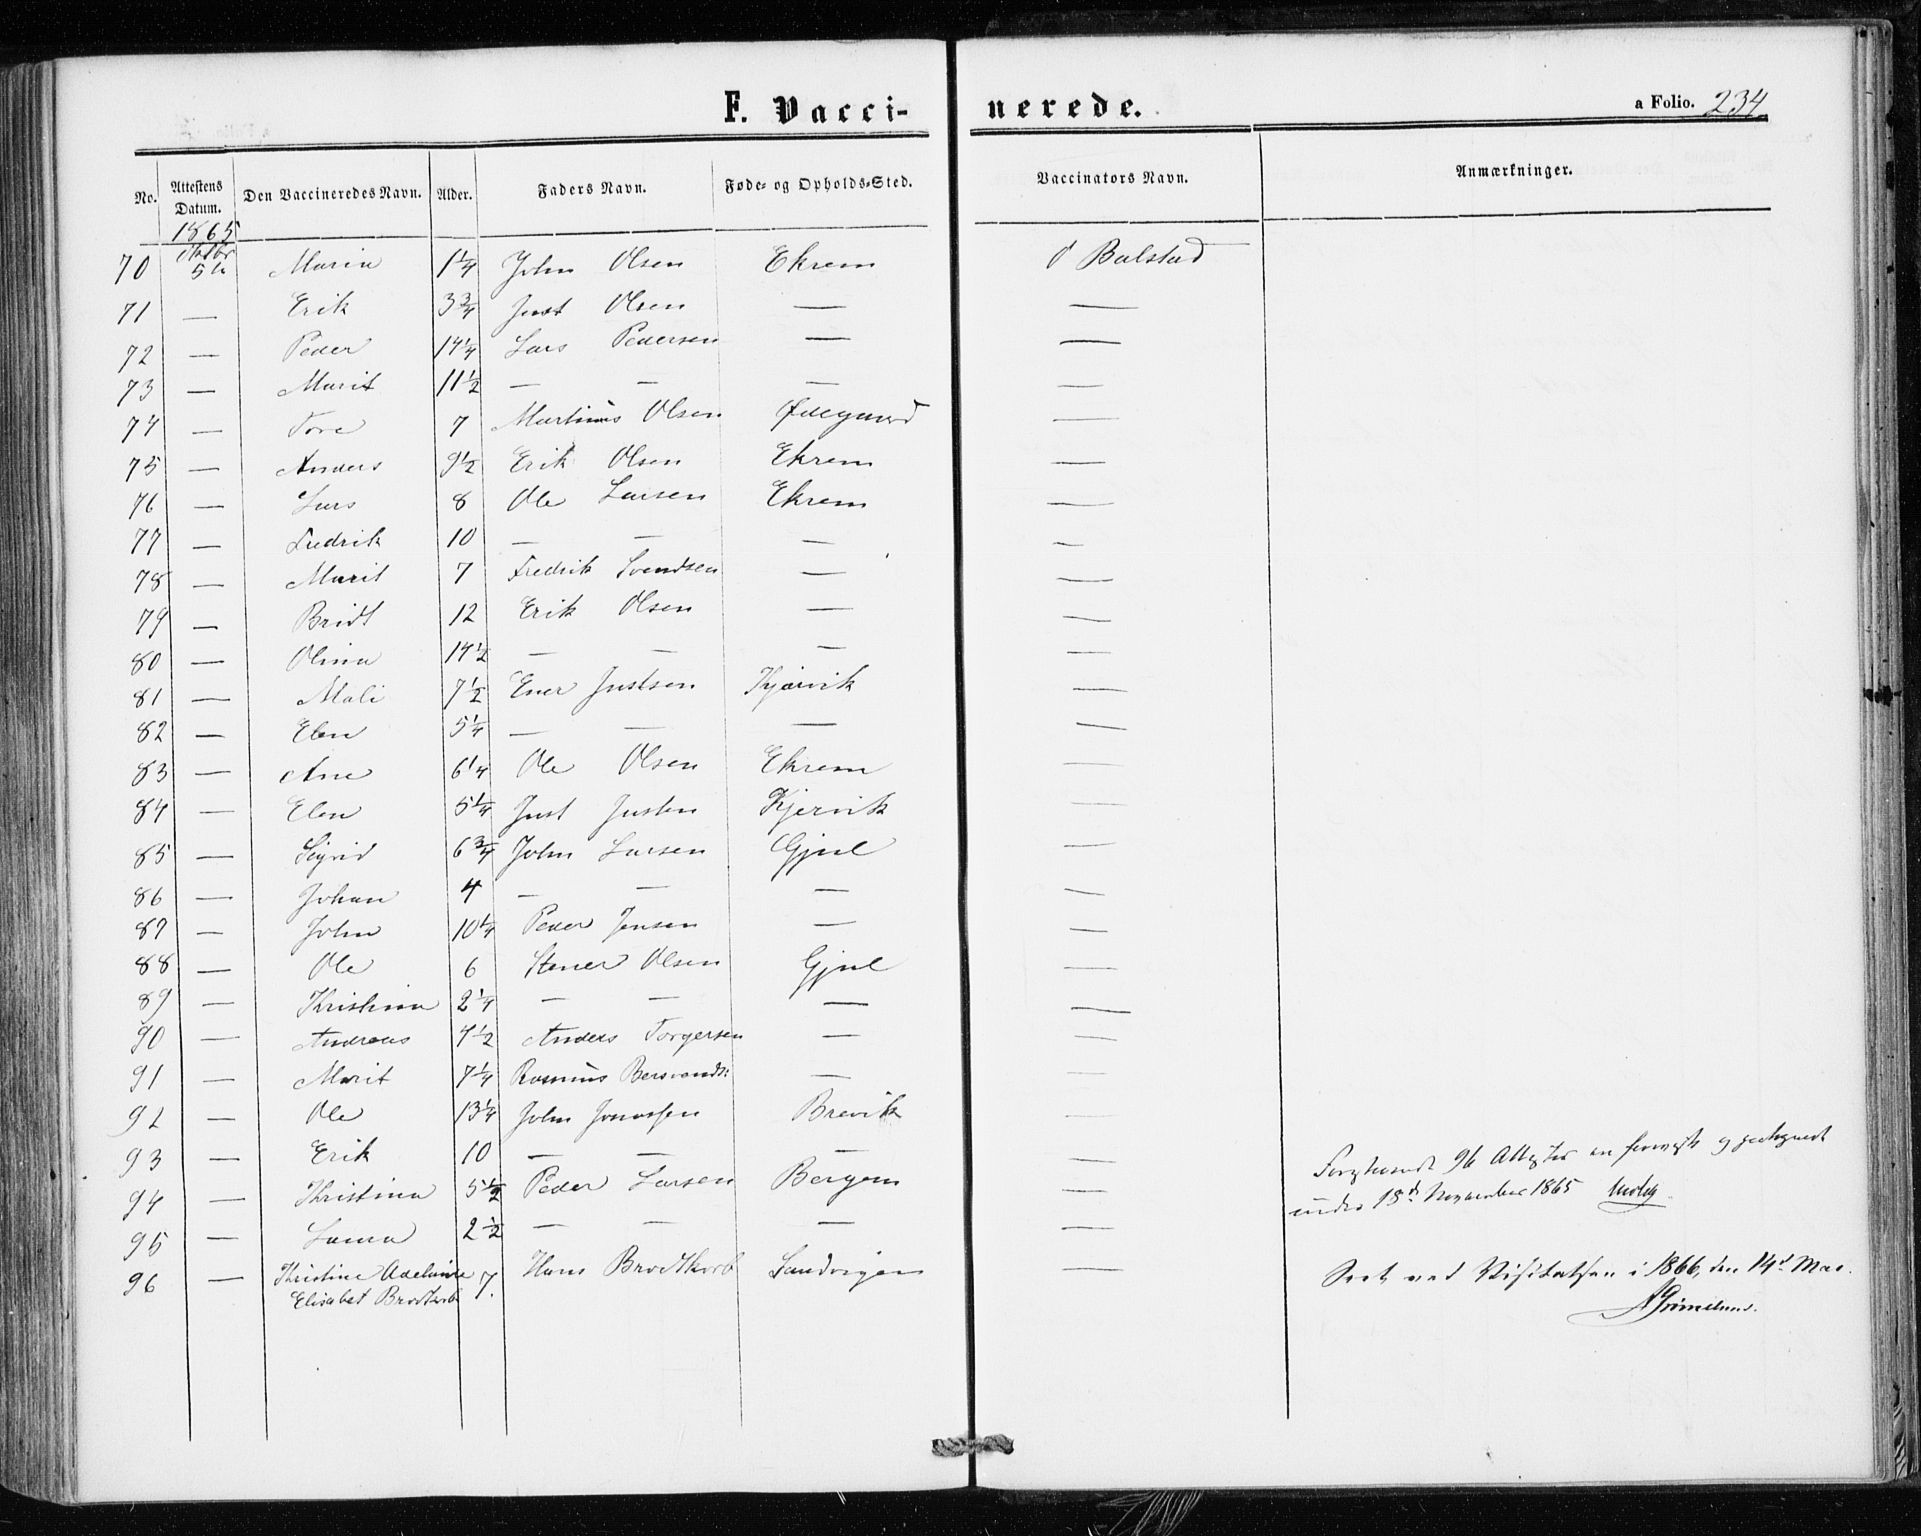 F. Vacci-
nerede.
a Folio. 234
No. Attestens Datum. Den Vaccineredes Navn. Alder. Faders Navn. Føde- og Opholds-Sted. Vaccinators Navn. Anmærkninger.
1865
70 Oktbr 5te Marin 1 1/4 John Olsen Ekrem O Balstad
71 — Erik 3 3/4 Just Olsen — —
72 — Peder 14 1/4 Lars Pedersen — —
73 — Marit 11 1/2 — — — —
74 — Tore 7 Martinus Olsen Ødegaard —
75 — Anders 9 1/2 Erik Olsen Ekrem —
76 — Lars 8 Ole Larsen Ekrem —
77 — Fredrik 10 — — — —
78 — Marit 7 Fredrik Svendsen — —
79 — Bridt 12 Erik Olsen — —
80 — Olina 14 1/2 — — — —
81 — Mali 7 1/2 Ener Justsen Kjærvik —
82 — Elen 5 1/4 — — — —
83 — Ane 6 1/4 Ole Olsen Ekrem —
84 — Elen 5 1/4 Just Justen Kjervik —
85 — Sigrid 6 3/4 John Larsen Gjul —
86 — Johan 4 — — — —
87 — John 10 1/4 Peder Jensen — —
88 — Ole 6 Stener Olsen Gjul —
89 — Kristina 2 1/4 — — — —
90 — Andreas 4 1/2 Anders Torgersen — —
91 — Marit 7 1/4 Rasmus Bersvends: — —
92 — Ole 13 1/4 John Jonassen Brevik —
93 — Erik 10 — — — —
94 — Kristina 5 1/2 Peder Larsen Bergem —
95 — Laura 2 1/2 — — — —
96 — Kristine Adelaide 7. Hans Brodtkorb Sandvigen —
Elisabet Brodtkorb
96 Attester og
under 15d November 1865
Seet ved Visitatsen i 1866, den 14d Mai.
A Grimelund.